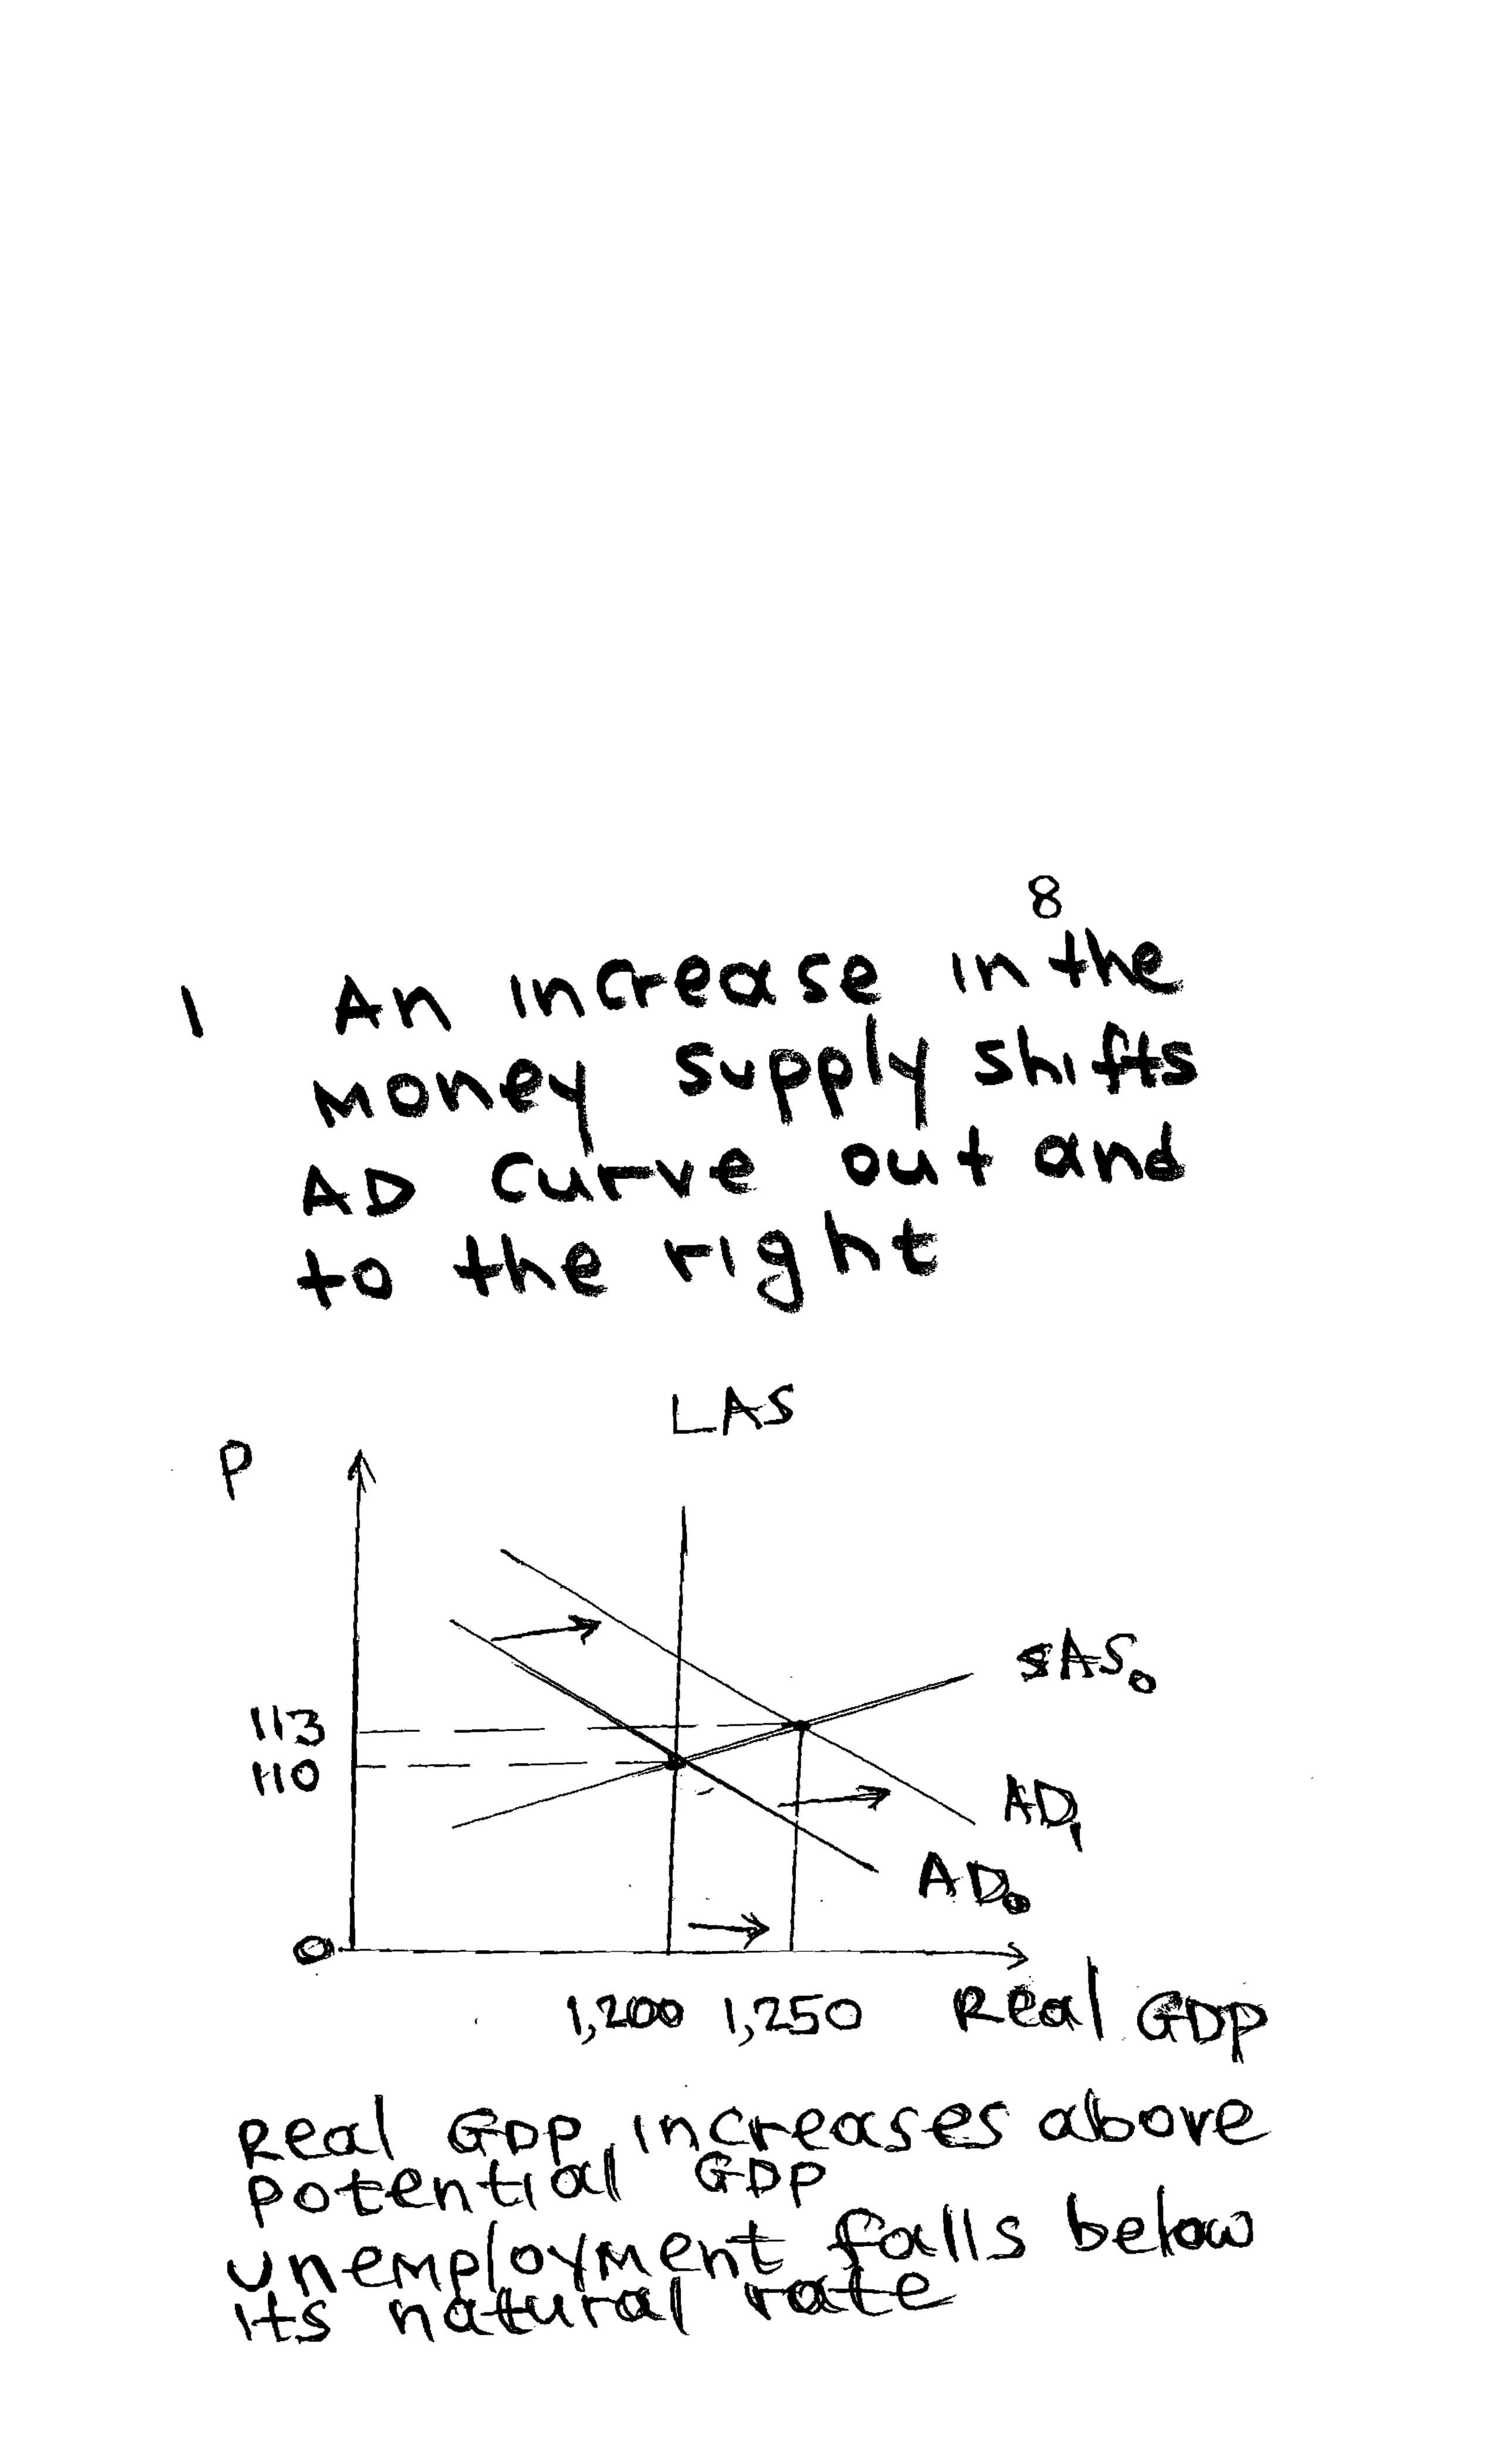 8
1 An increase in the
money supply shifts
AD curve out and
to the right
LAS
P
SAS₀
113
110
AD₁
AD₀
0
1,200 1,250 Real GDP
Real GDP increases above
potential GDP
unemployment falls below
its natural rate